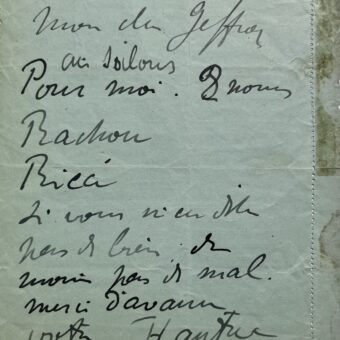 Mon cher Geffroy
au Salons
Pour moi. 2 noms
Rachou
Ricci
Si vous n'en dites
pas de bien, du
moins pas de mal.
merci d'avance
votre Hawkins